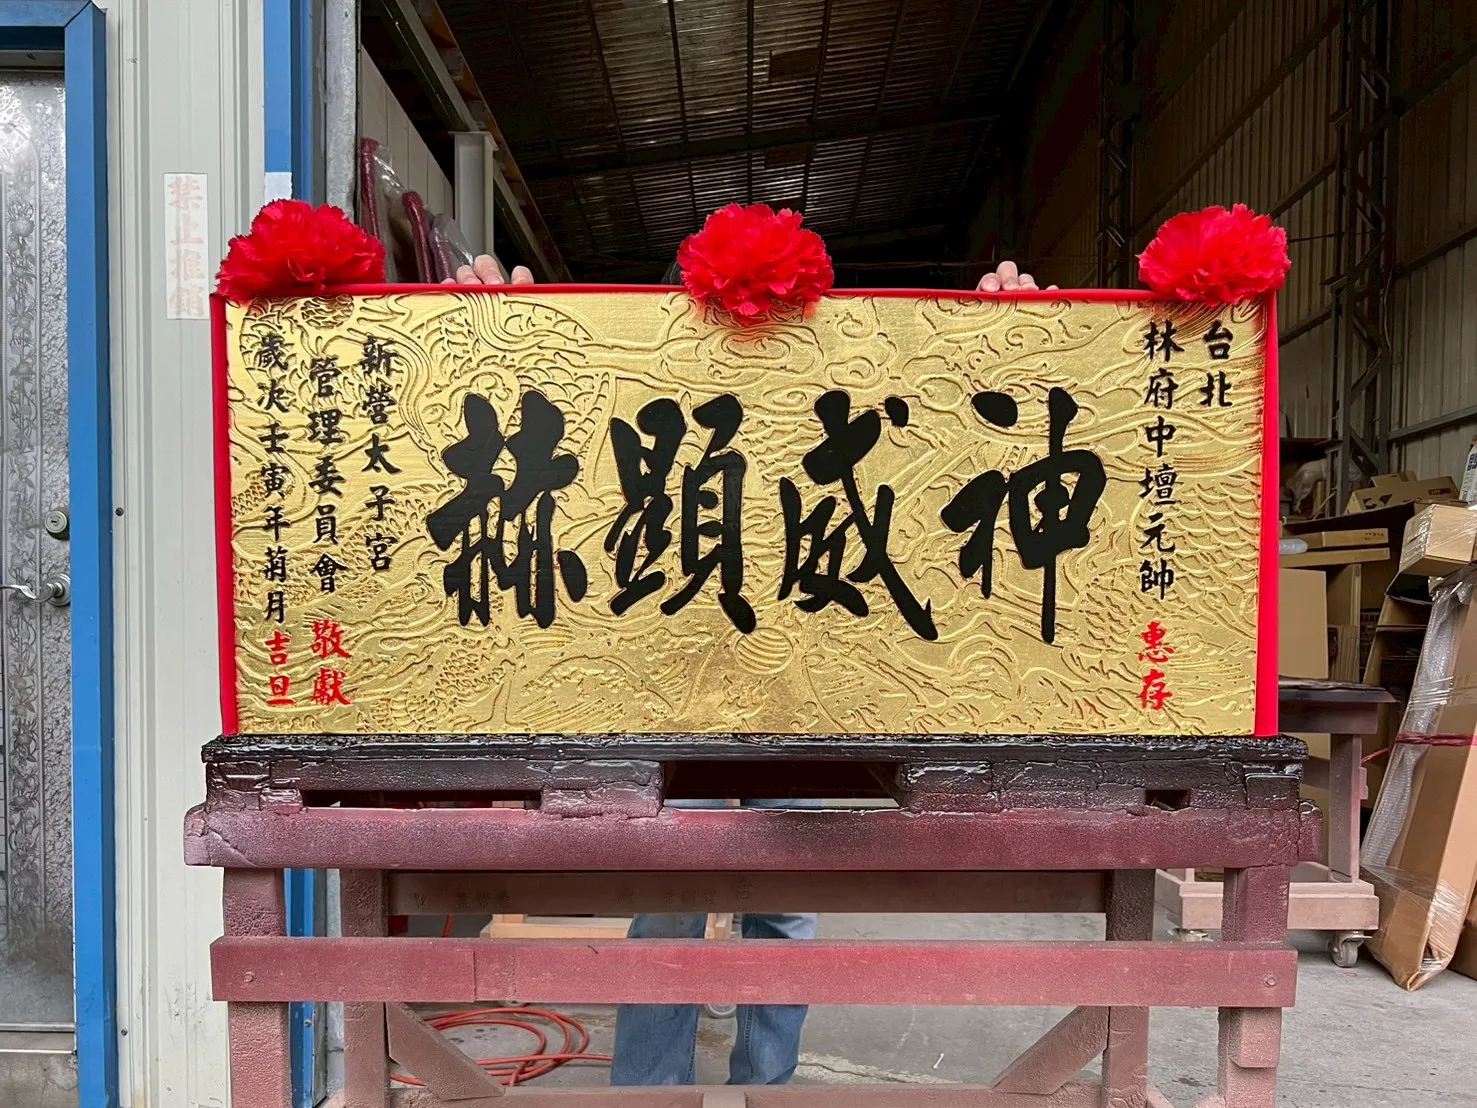 台北
林府中壇元帥 惠存
神威顯赫
新營太子宮
管理委員會 敬獻
歲次壬寅年菊月 吉旦
禁止推銷